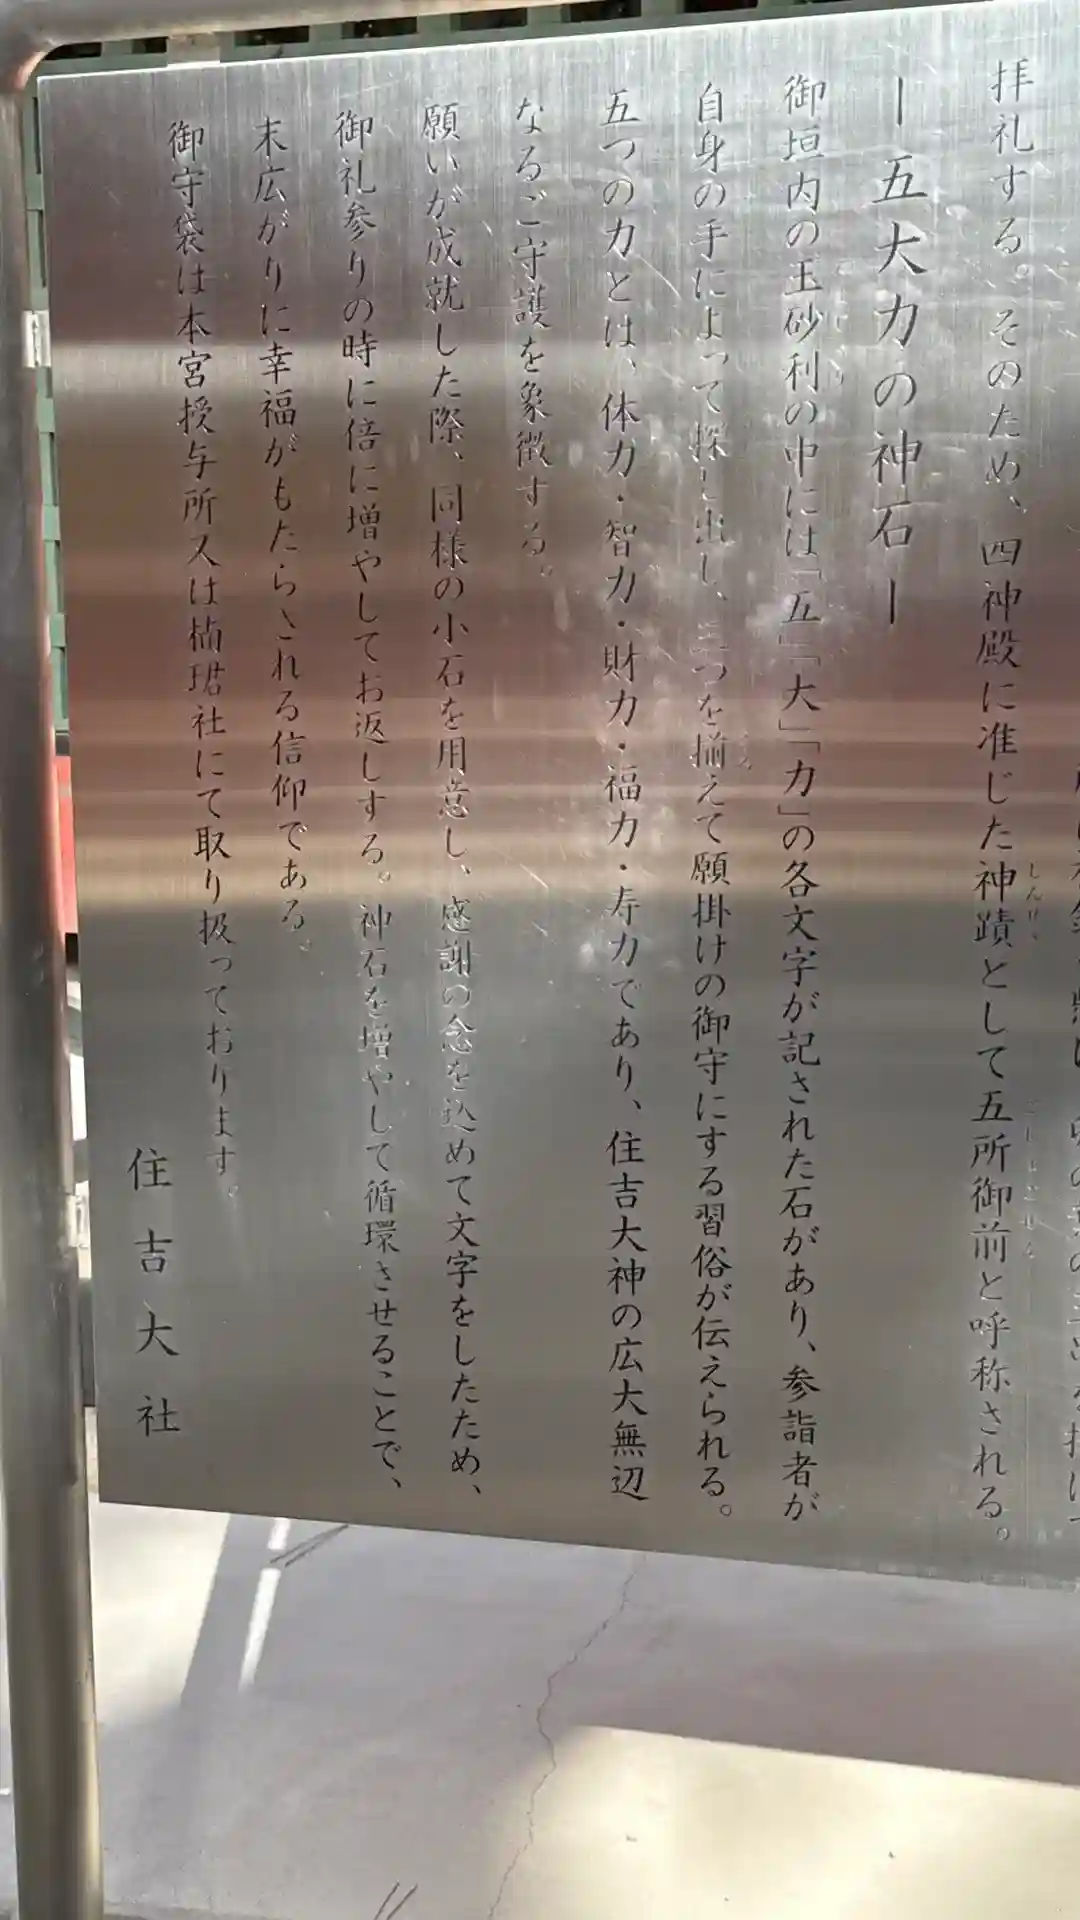 拝礼する。そのため、四神殿に准じた神蹟として五所御前と呼称される。
―五大力の神石―
御垣内の玉砂利の中には「五」「大」「力」の各文字が記された石があり、参詣者が
自身の手によって探し出し、三つを揃えて願掛けの御守にする習俗が伝えられる。
五つの力とは、体力・智力・財力・福力・寿力であり、住吉大神の広大無辺
なるご守護を象徴する。
願いが成就した際、同様の小石を用意し、感謝の念を込めて文字をしたため、
御礼参りの時に倍に増やしてお返しする。神石を増やして循環させることで、
末広がりに幸福がもたらされる信仰である。
御守袋は本宮授与所又は楠珺社にて取り扱っております。
住吉大社